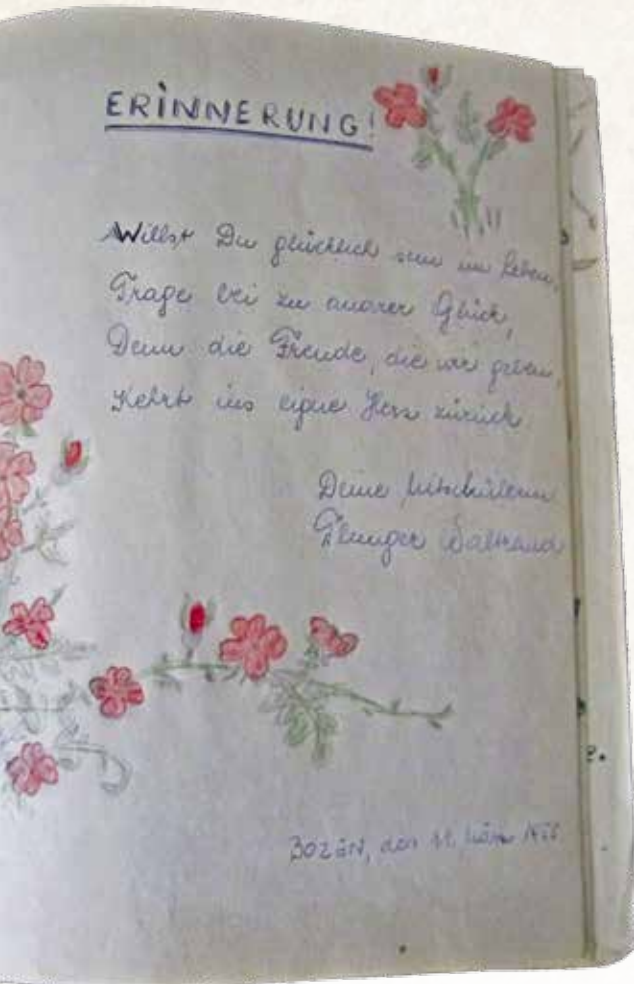 ERINNERUNG!
Willst Du glücklich sein im Leben,
Trage bei zu andrer Glück,
Denn die Freude, die wir geben,
Kehrt ins eigne Herz zurück
Deine Mitschülerin
Waltraud
BOZEN, den März